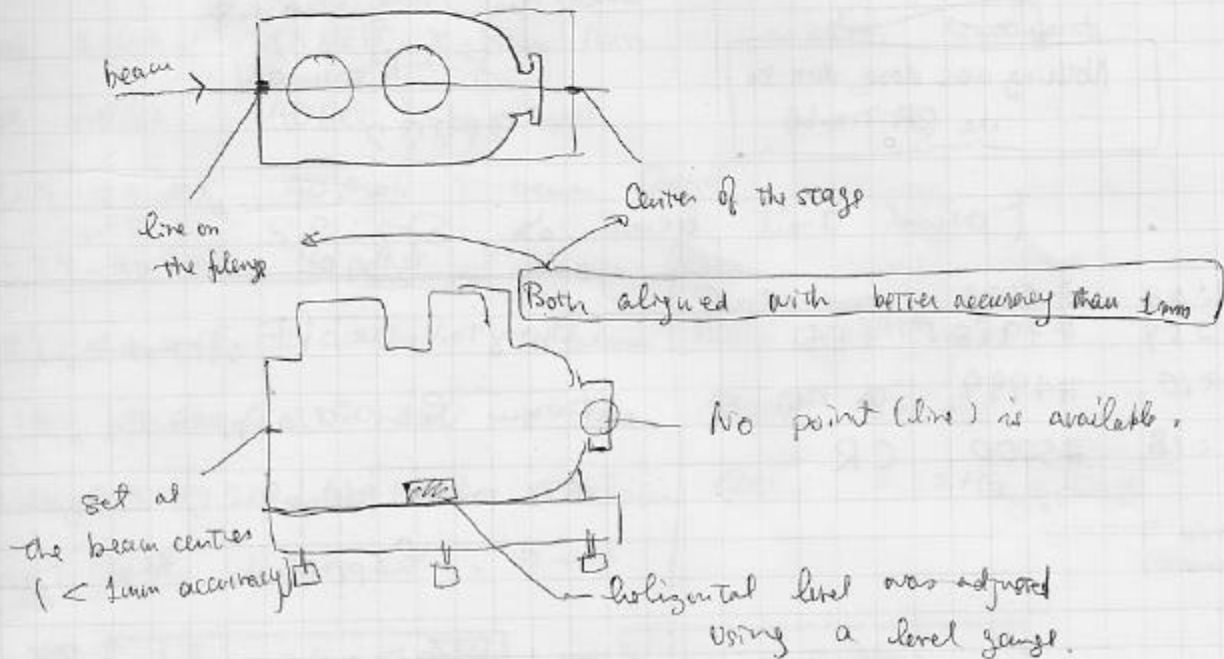 beam
Center of the stage
line on
the flenge
Both aligned with better accuracy than 1mm
No point (line) is available.
set at
the beam center
( < 1mm accuracy)
holizontal level was adjusted
using a level gauge.